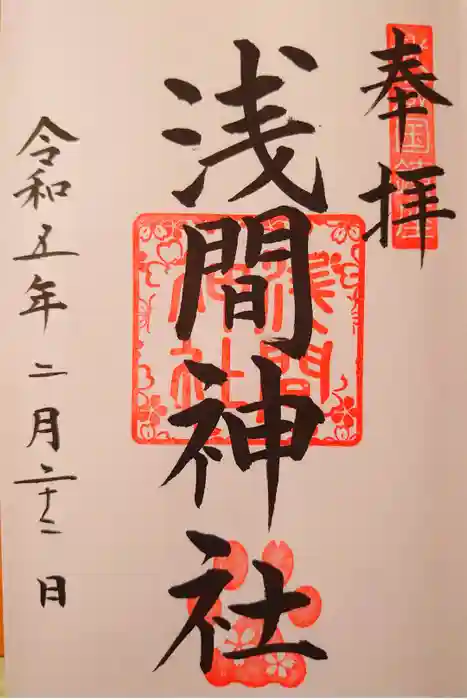 奉拝
浅間神社
浅間神社
令和五年二月二十二日